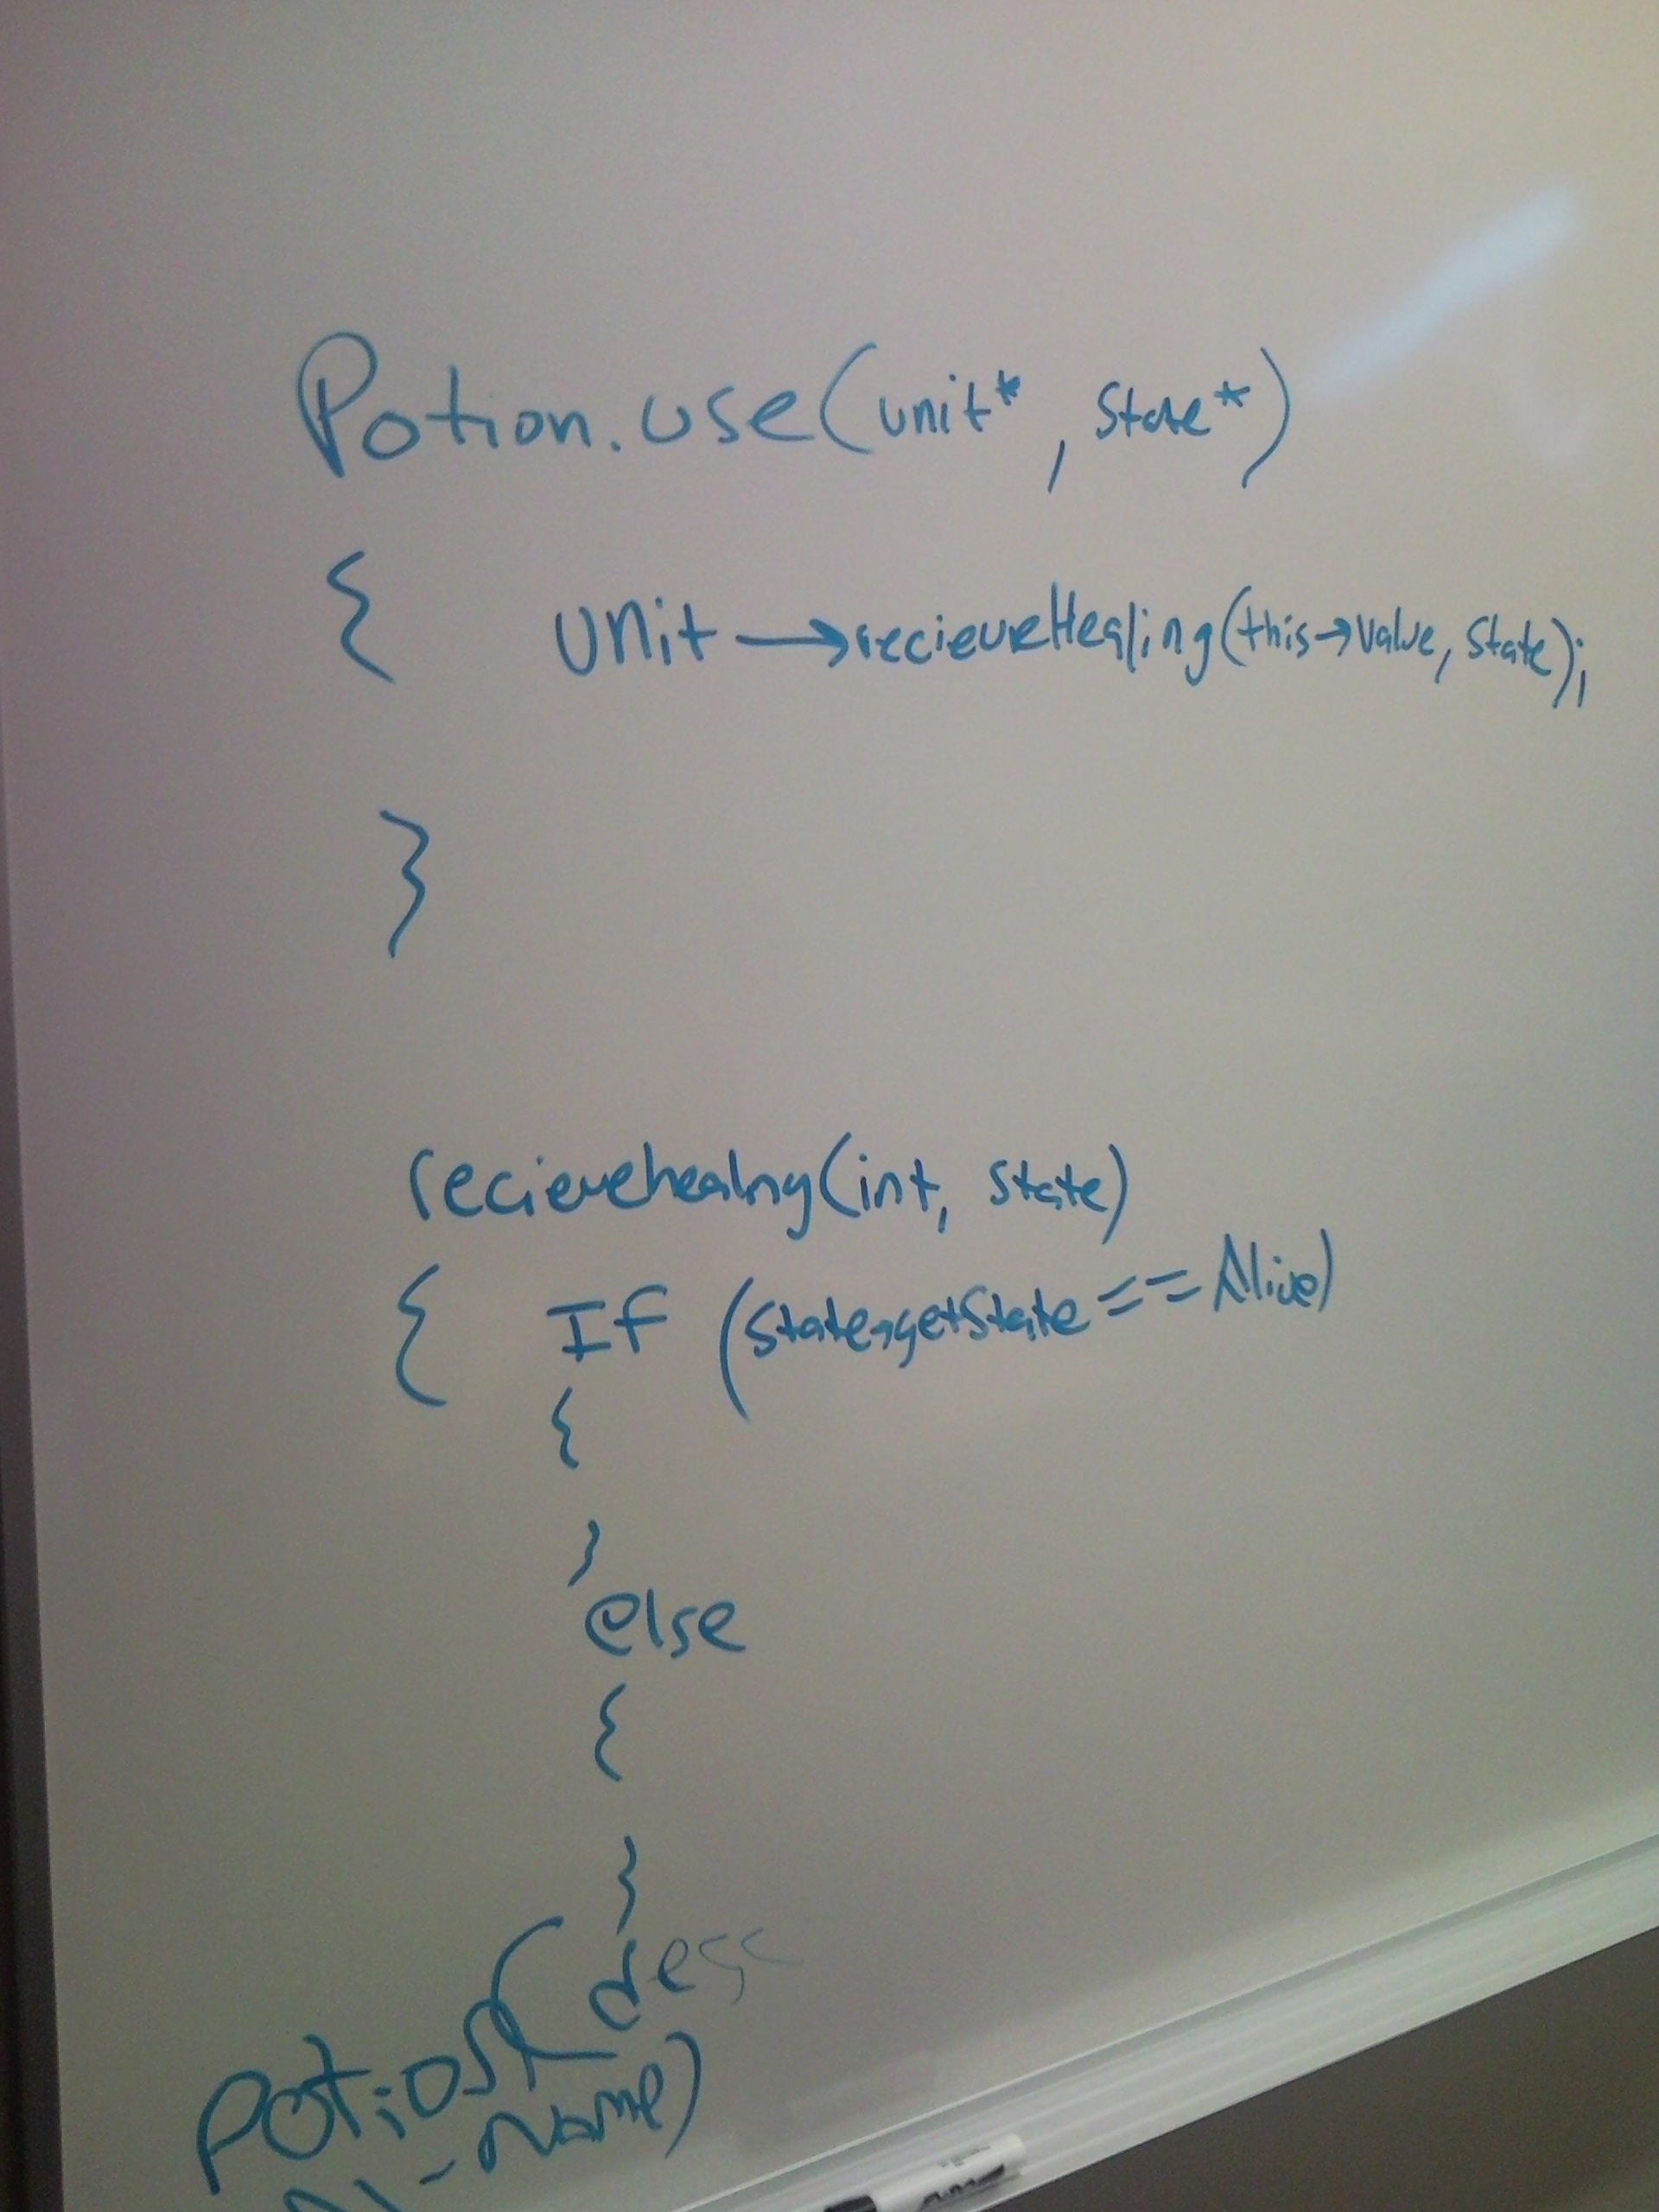 Potion.use(unit*, state*)
{ unit→recieveHealing(this→value, state);
}
recievehealng(int, state)
{ If (state→getState == Alive)
{
}
else
{
}
Potion( desc
name)